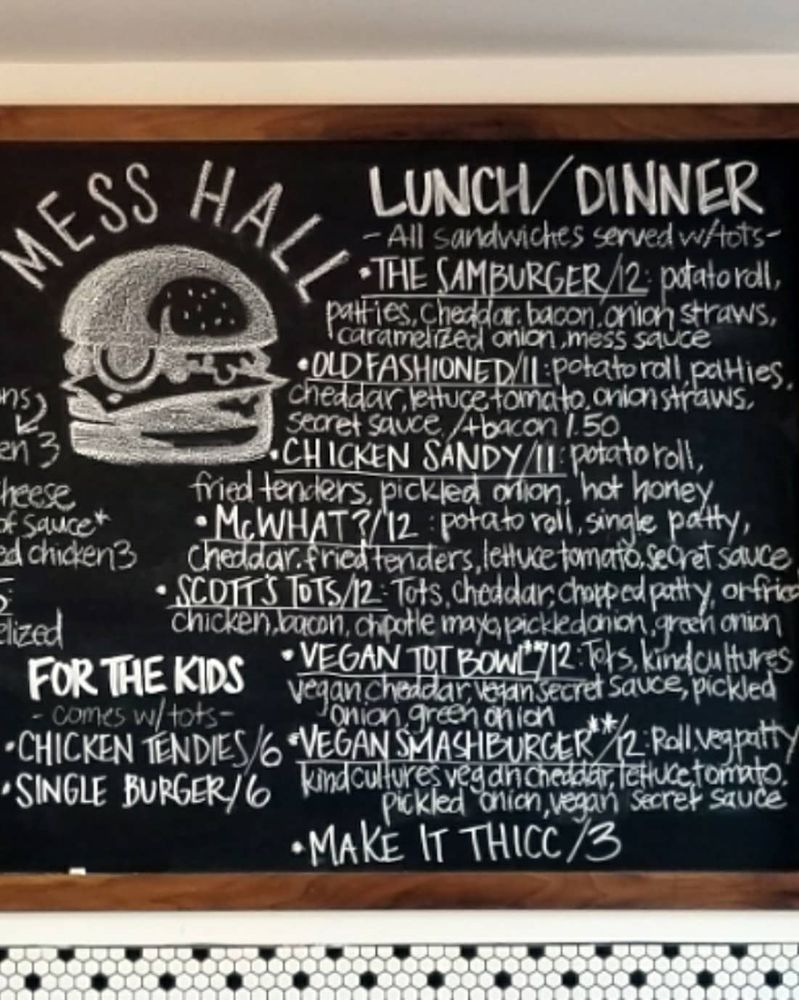 MESS HALL
LUNCH/DINNER
-All sandwiches served w/tots-
•THE SAMBURGER/12: potato roll,
patties, cheddar, bacon, onion straws,
caramelized onion, mess sauce
•OLD FASHIONED/11: potato roll, patties,
cheddar, lettuce, tomato, onion straws,
secret sauce /+bacon 1.50
•CHICKEN SANDY/11: potato roll,
fried tenders, pickled onion, hot honey
•McWHAT?/12: potato roll, single patty,
cheddar, fried tenders, lettuce, tomato, secret sauce
•SCOTT'S TOTS/12: Tots, cheddar, chopped patty, or fried
chicken, bacon, chipotle mayo, pickled onion, green onion
•VEGAN TOT BOWL**/12: Tots, kindcultures
vegan cheddar, vegan secret sauce, pickled
onion, green onion
•VEGAN SMASHBURGER**/12: Roll, veg patty
kindcultures vegan cheddar, lettuce, tomato,
pickled onion, vegan secret sauce
•MAKE IT THICC/3
en 3
heese
of sauce*
ed chicken 3
elized
FOR THE KIDS
-comes w/tots-
•CHICKEN TENDIES/6
•SINGLE BURGER/6